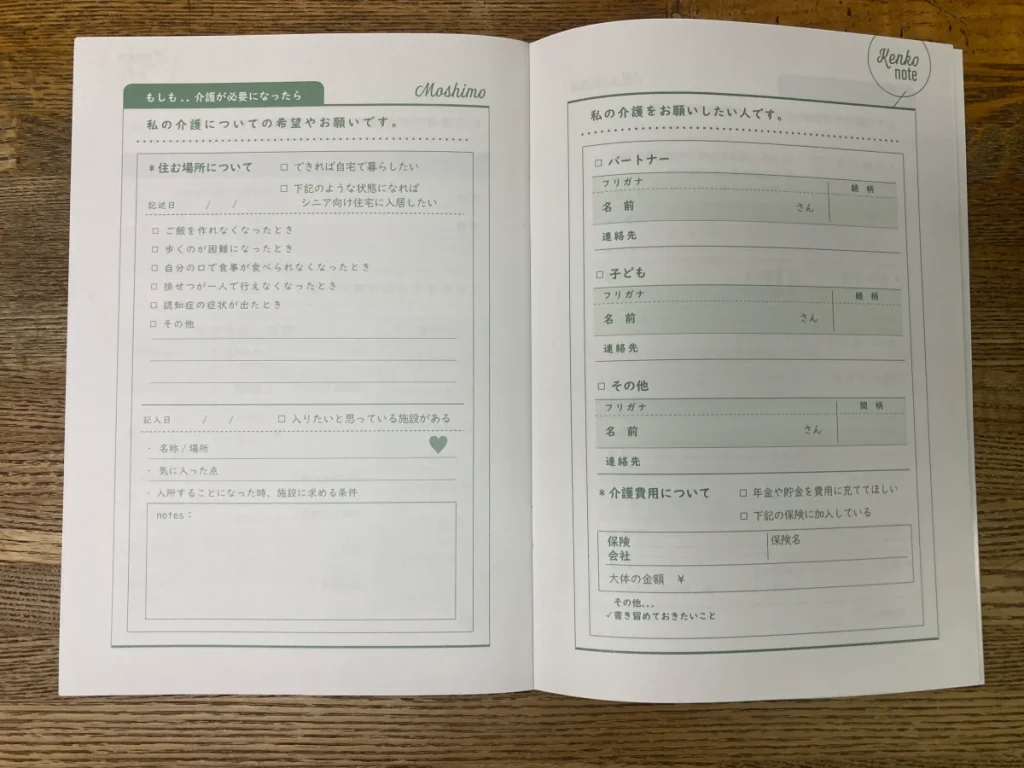 もしも..介護が必要になったら
Moshimo
私の介護についての希望やお願いです。
*住む場所について
□ できれば自宅で暮らしたい
□ 下記のような状態になれば
シニア向け住宅に入居したい
記述日 / /
□ ご飯を作れなくなったとき
□ 歩くのが困難になったとき
□ 自分の口で食事が食べられなくなったとき
□ 排せつが一人で行えなくなったとき
□ 認知症の症状が出たとき
□ その他
記入日 / /
□ 入りたいと思っている施設がある
・名称/場所
・気に入った点
・入所することになった時、施設に求める条件
notes：
Kenko
note
私の介護をお願いしたい人です。
□ パートナー
フリガナ
続柄
名前 さん
連絡先
□ 子ども
フリガナ
続柄
名前 さん
連絡先
□ その他
フリガナ
間柄
名前 さん
連絡先
*介護費用について
□ 年金や貯金を費用に充ててほしい
□ 下記の保険に加入している
保険
会社
保険名
大体の金額 ¥
その他...
✓書き留めておきたいこと